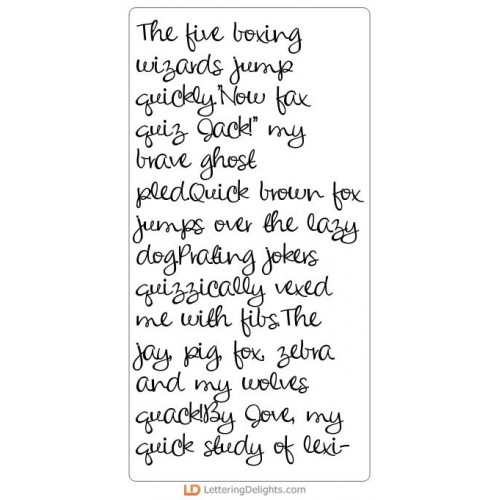 The five boxing
wizards jump
quickly."Now fax
quiz Jack!" my
brave ghost
pled.Quick brown fox
jumps over the lazy
dogPrating jokers
quizzically vexed
me with fibs.The
jay, pig, fox, zebra
and my wolves
quack!By Jove, my
quick study of lexi-
LD LetteringDelights.com